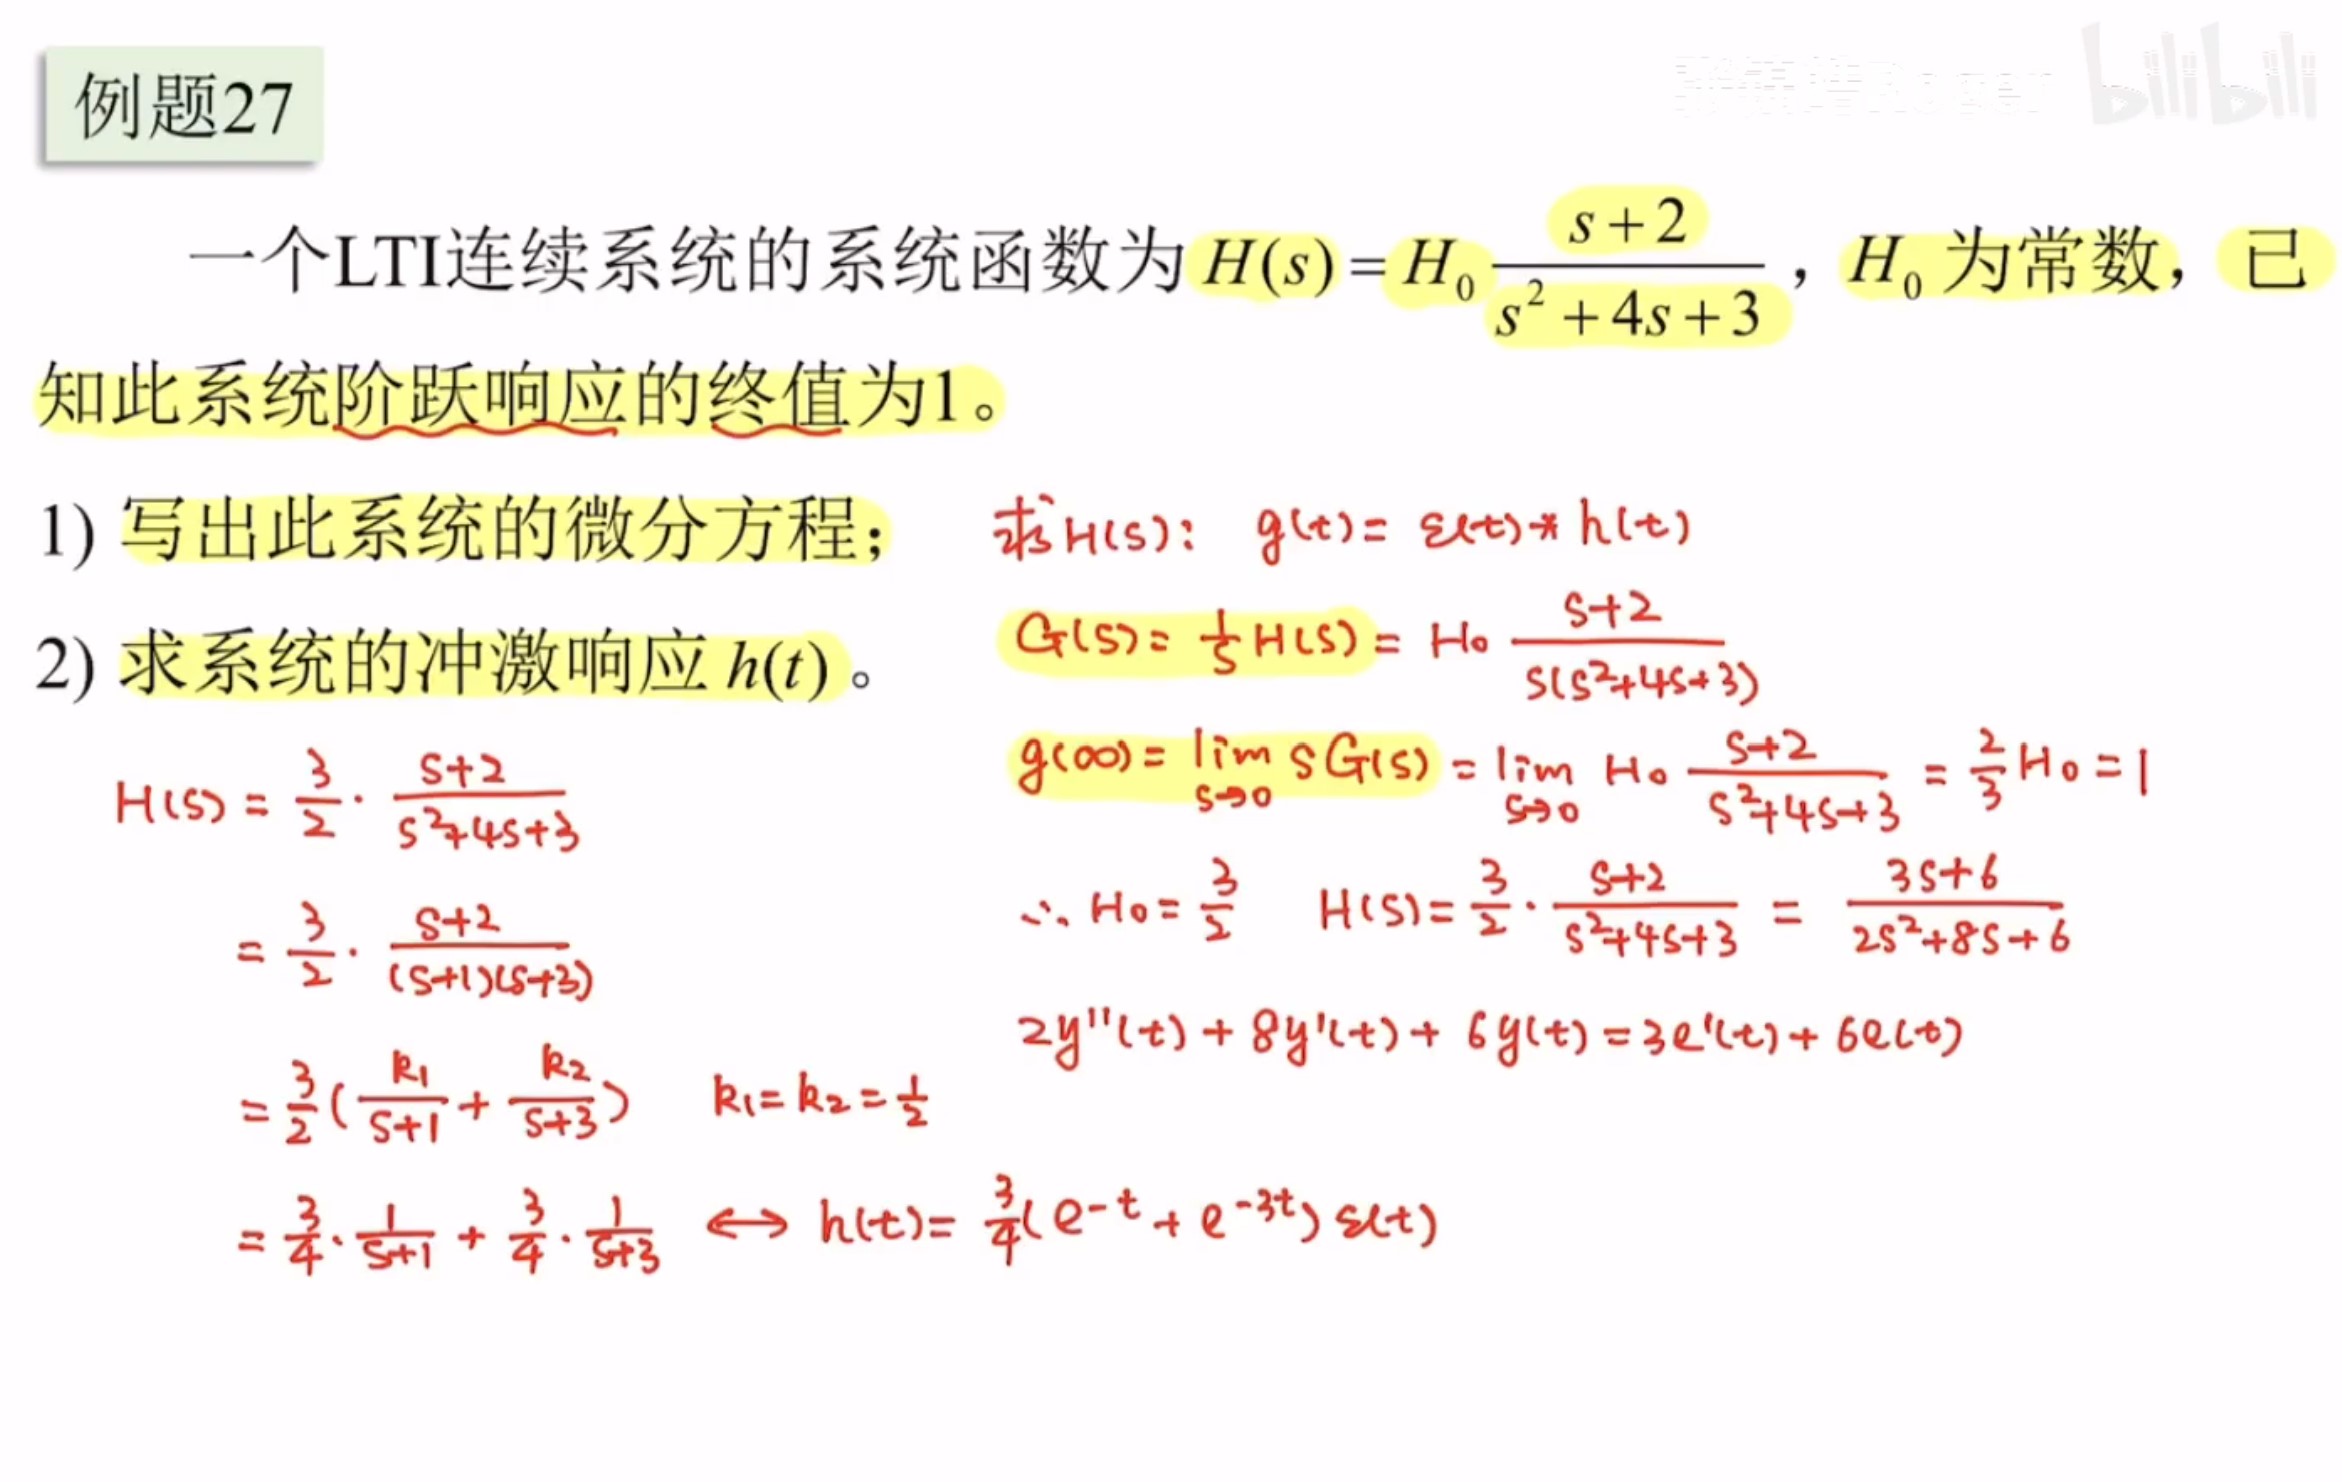 例题27
bilibili
一个LTI连续系统的系统函数为 H(s) = H₀ (s+2)/(s²+4s+3)，H₀ 为常数，已
知此系统阶跃响应的终值为1。
1) 写出此系统的微分方程；
2) 求系统的冲激响应 h(t) 。
求H(s): g(t) = ε(t) * h(t)
G(s) = 1/s H(s) = H₀ (s+2)/(s(s²+4s+3))
g(∞) = lim s→0 sG(s) = lim s→0 H₀ (s+2)/(s²+4s+3) = 2/3 H₀ = 1
∴ H₀ = 3/2 H(s) = 3/2 · (s+2)/(s²+4s+3) = (3s+6)/(2s²+8s+6)
2y''(t) + 8y'(t) + 6y(t) = 3e'(t) + 6e(t)
H(s) = 3/2 · (s+2)/(s²+4s+3)
= 3/2 · (s+2)/((s+1)(s+3))
= 3/2 (k₁/(s+1) + k₂/(s+3)) k₁ = k₂ = 1/2
= 3/4 · 1/(s+1) + 3/4 · 1/(s+3) ↔ h(t) = 3/4 (e^(-t) + e^(-3t)) ε(t)